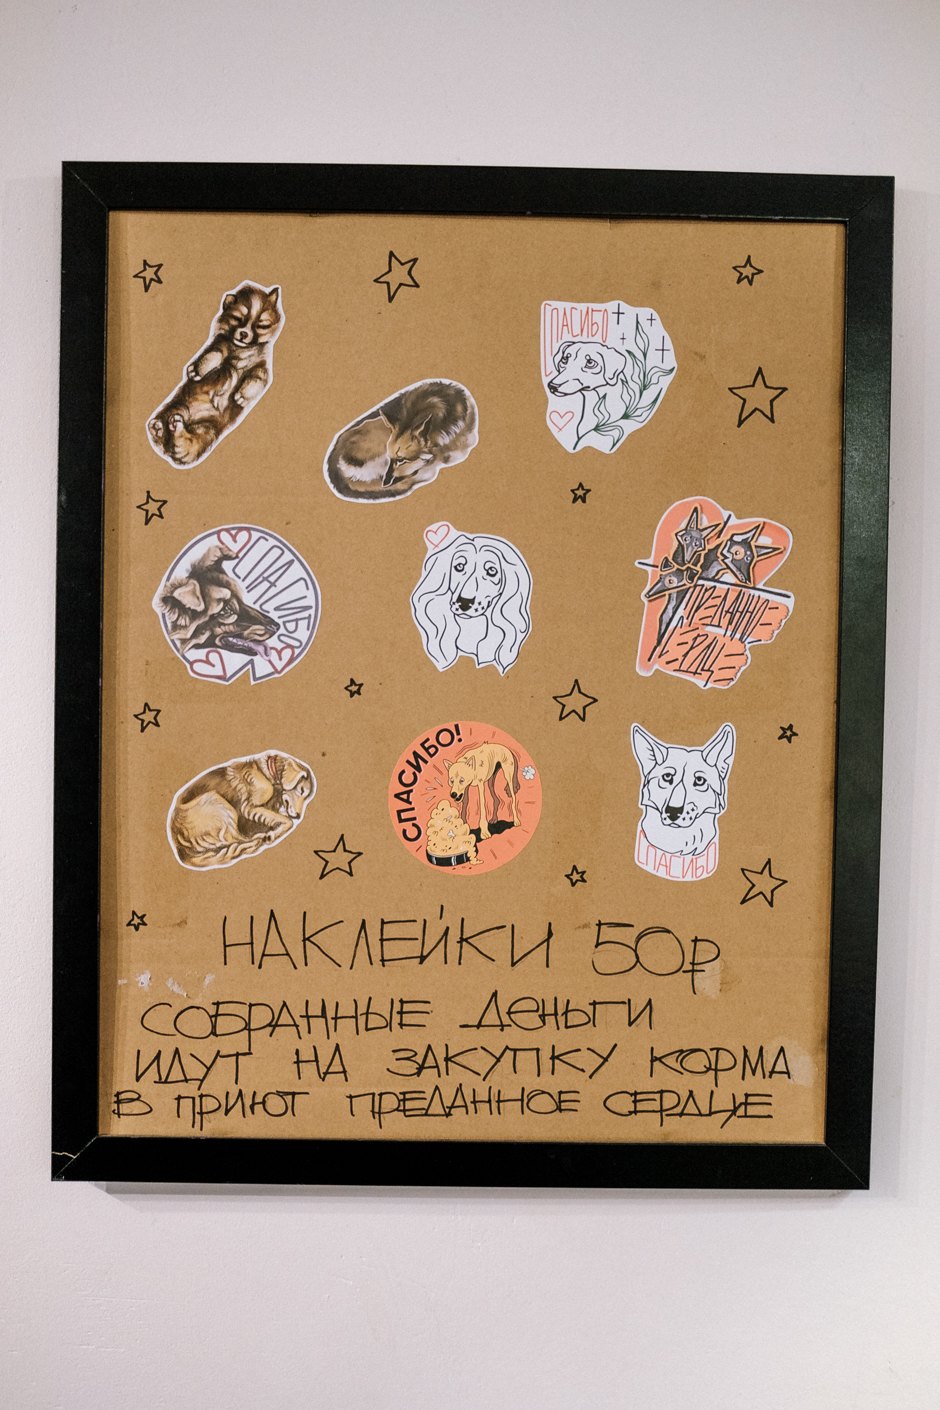 СПАСИБО
СПАСИБО
ПРЕДАННОЕ
СЕРДЦЕ
СПАСИБО!
СПАСИБО
НАКЛЕЙКИ 50₽
СОБРАННЫЕ ДЕНЬГИ
ИДУТ НА ЗАКУПКУ КОРМА
В ПРИЮТ ПРЕДАННОЕ СЕРДЦЕ